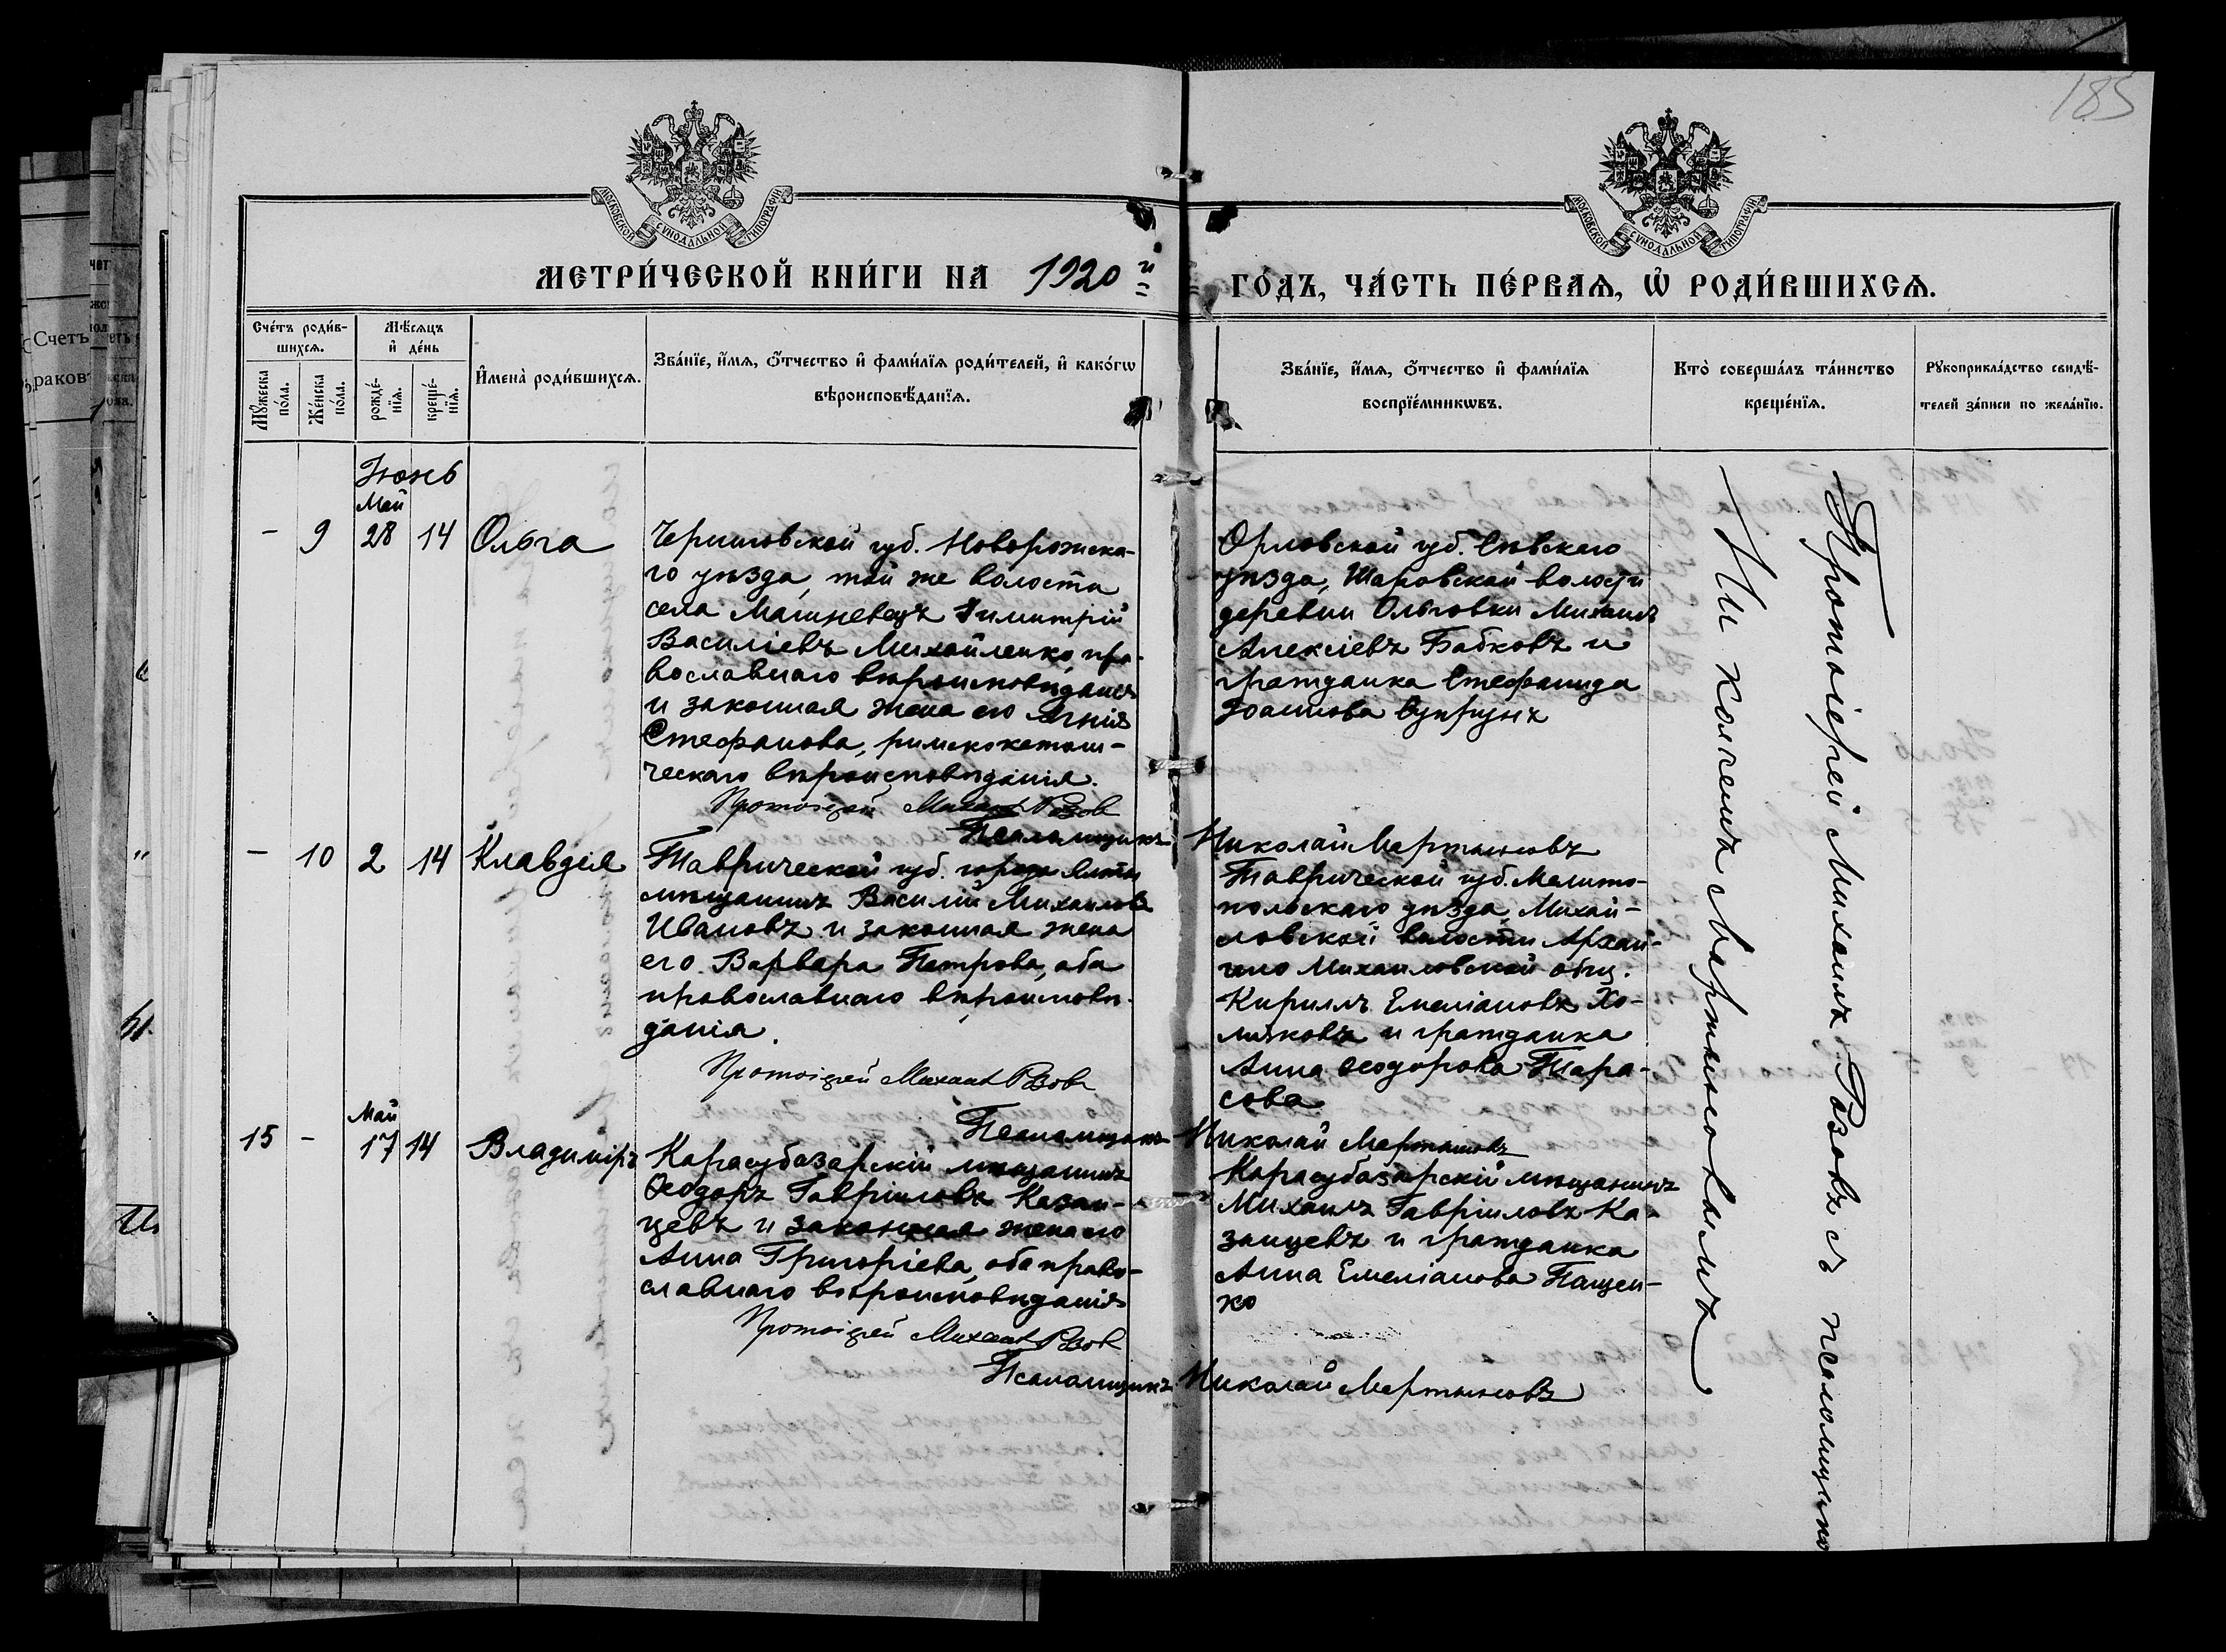 185
МОСКОВСКОЙ СУНОДАЛЬНОЙ ТИПОГРАФІИ
МОСКОВСКОЙ СУНОДАЛЬНОЙ ТИПОГРАФІИ
МЕТРИ́ЧЕСКОЙ КНИ́ГИ НА 1920й
ГО́ДЪ, ЧА́СТЬ ПЕ́РВАѦ, Ѡ҆ РОДИ́ВШИХСѦ.
Сче́тъ роди́в-
шихсѧ.
Мѣ́сѧцъ
и҆ де́нь
Мꙋ́жеска по́ла.
Же́нска по́ла.
рожде́-
нїѧ.
креще́-
нїѧ.
И҆мена̀ роди́вшихсѧ.
Зва́нїе, и҆́мѧ, ѻ҆́тчество и҆ фами́лїѧ роди́телей, и҆ како́гѡ
вѣроисповѣ́данїѧ.
Зва́нїе, и҆́мѧ, ѻ҆́тчество и҆ фами́лїѧ
воспрїе́мникѡвъ.
Кто̀ соверша́лъ та́инство
креще́нїѧ.
Рꙋкоприкла́дство свидѣ́-
телей за́писи по жела́нїю.
Счетъ
Іюнь
Май
- 9 28 14 Ольга
Черниговской губ. Новорожска-
го уѣзда, той же волости
села Машневецъ Димитрій
Василіевъ Михайленко, пра-
вославнаго вѣроисповѣданія
и законная жена его Агнія
Стефанова, римскокатоли-
ческаго вѣроисповѣданія.
Протоіерей Михаилъ Розовъ
Псаломщикъ Николай Мартыновъ
Орловской губ. Сѣвскаго
уѣзда, Шаровской волости
деревни Ольговки Михаилъ
Алексіевъ Бабковъ и
гражданка Стефанида
Іоаннова Супрунъ
- 10 2 14 Клавдія
Таврической губ. города Ялты
мѣщанинъ Василій Михаиловъ
Ивановъ и законная жена
его Варвара Петрова, оба
православнаго вѣроисповѣ-
данія.
Протоіерей Михаилъ Розовъ
Псаломщикъ Николай Мартыновъ
Таврической губ. Мелито-
польскаго уѣзда, Михай-
ловской волости Архан-
гело Михаиловской общ.
Кириллъ Емеліановъ Хо-
мяковъ и гражданка
Анна Ѳеодорова Тара-
сова
Май
15 - 17 14 Владиміръ
Карасубазарскій мѣщанинъ
Ѳеодоръ Гавріиловъ Казан-
цевъ и законная жена его
Анна Григоріева, оба право-
славнаго вѣроисповѣданія
Протоіерей Михаилъ Розовъ
Псаломщикъ Николай Мартыновъ
Карасубазарскій мѣщанинъ
Михаилъ Гавріиловъ Ка-
занцевъ и гражданка
Анна Емеліанова Пащен-
ко
Протоіерей Михаилъ Розовъ съ псаломщико
Николаемъ Мартыновымъ